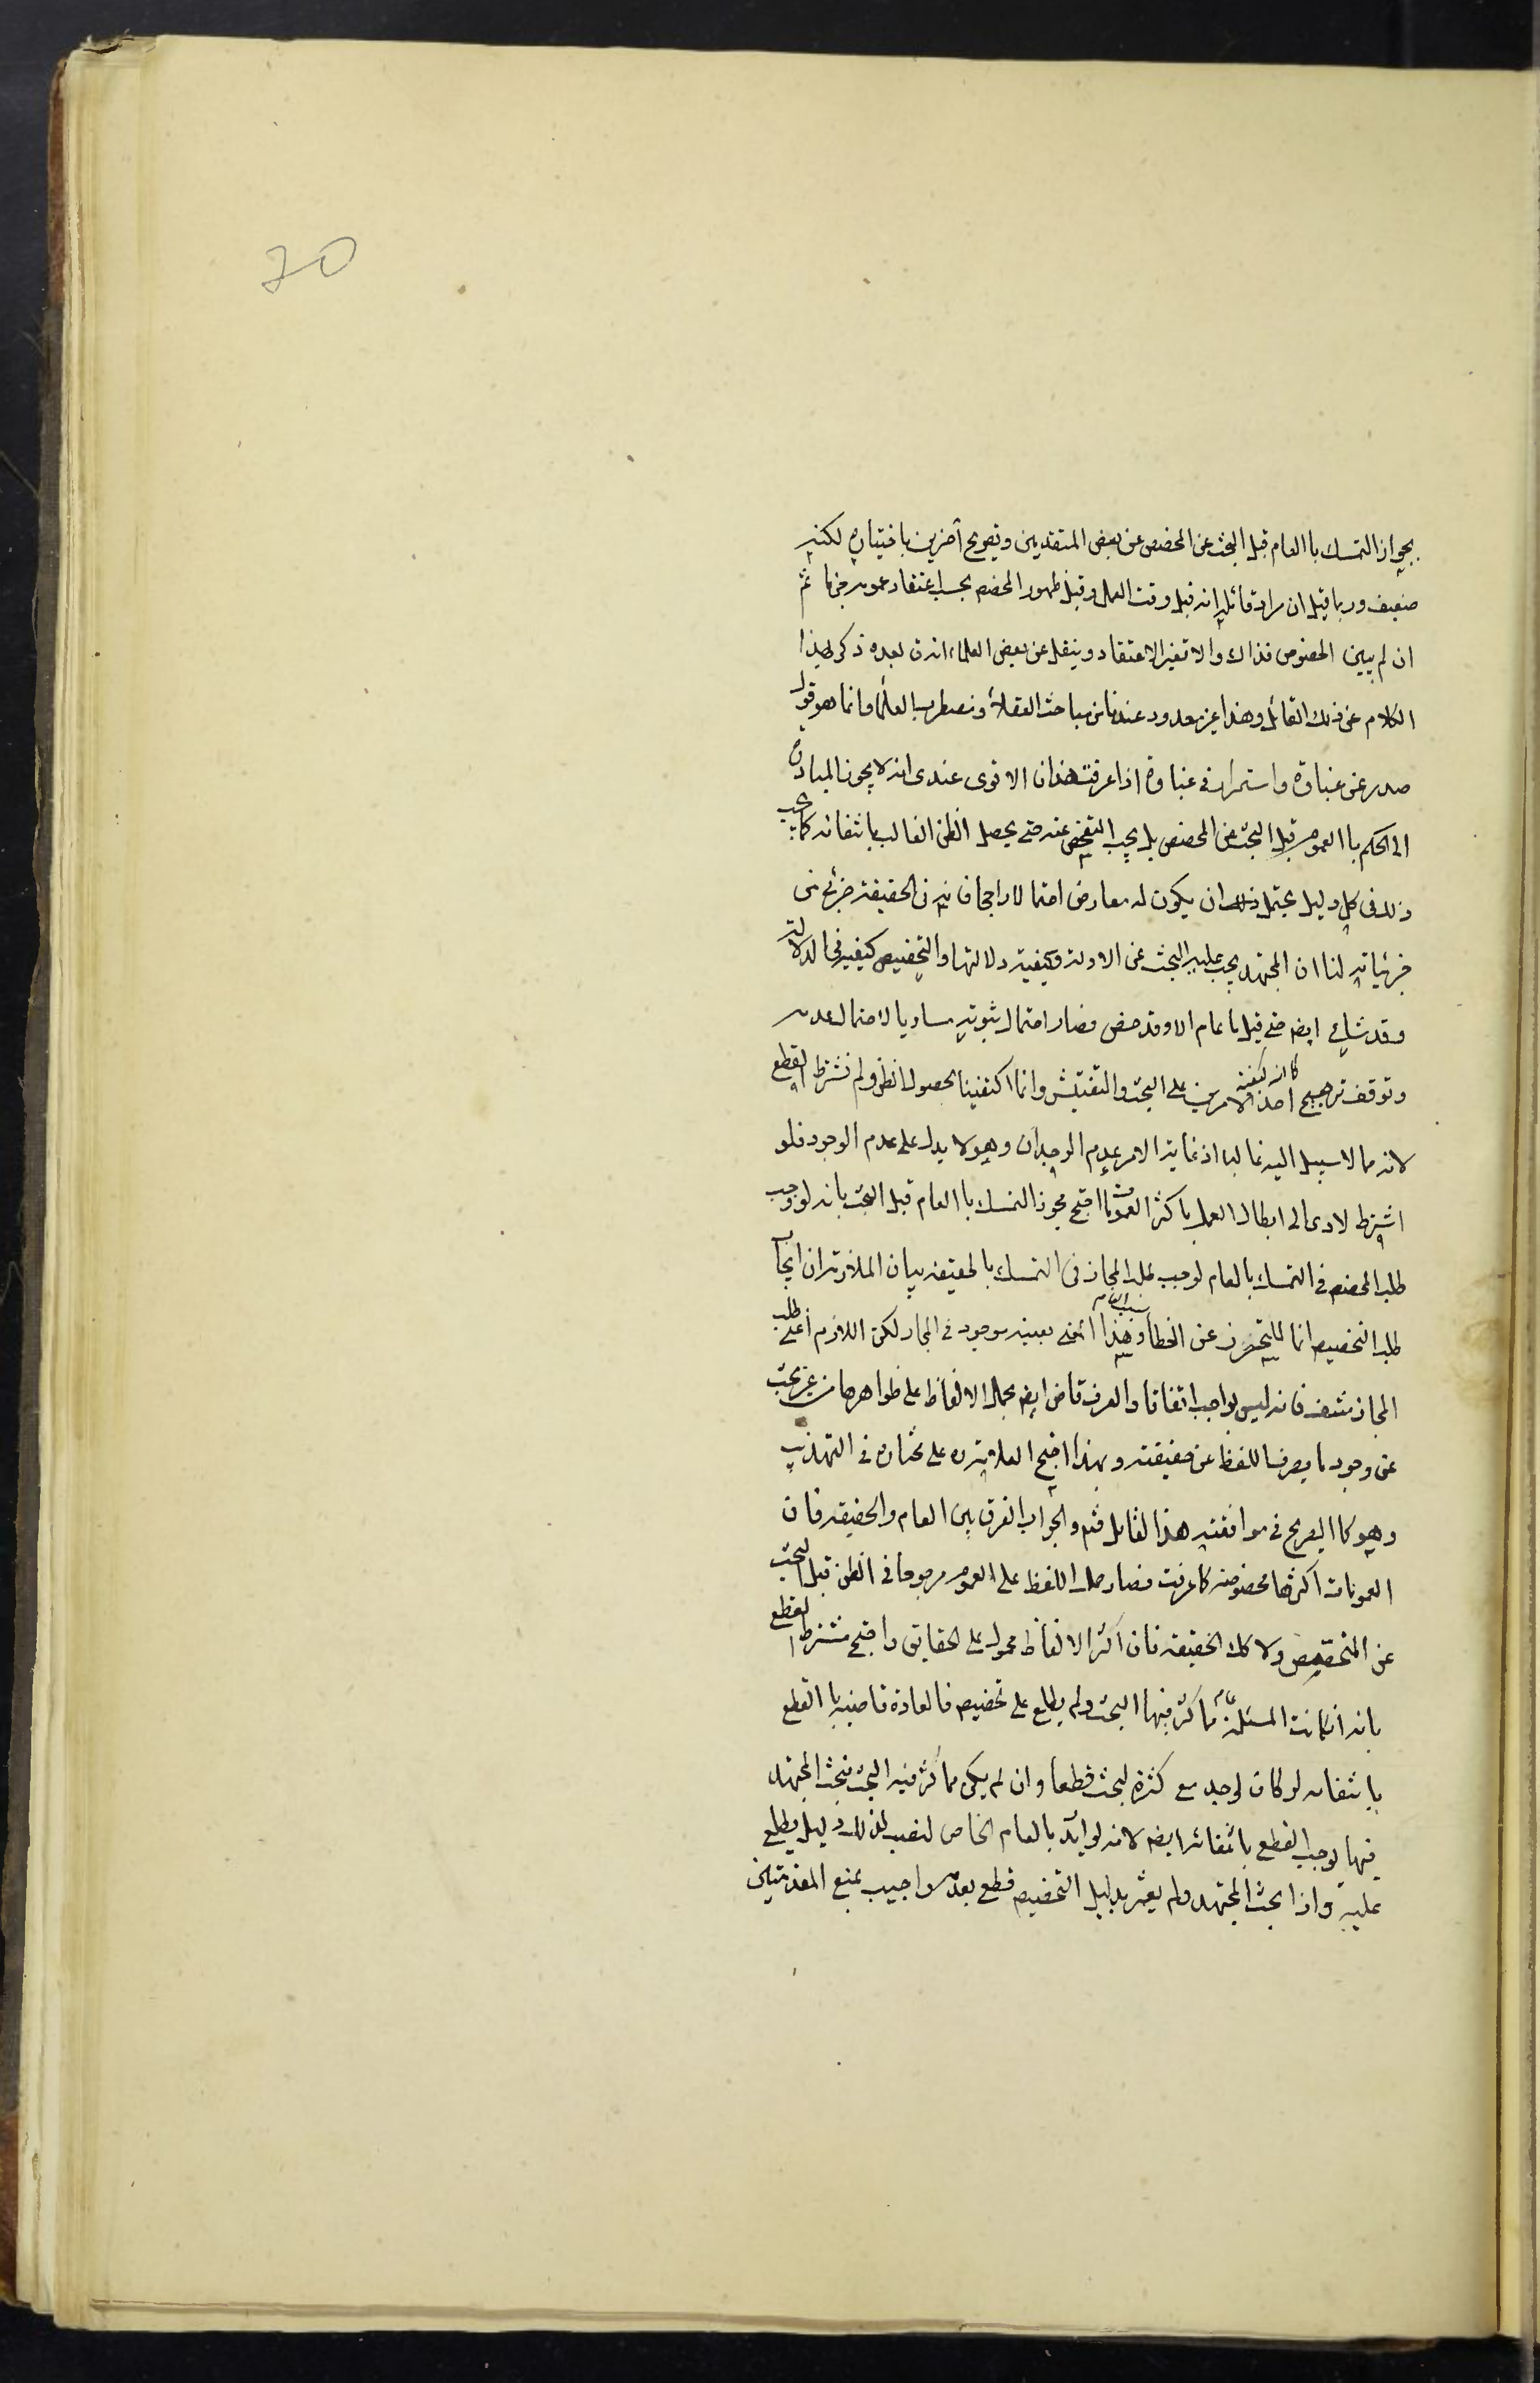 70
بجواز التمسك باالعام قبل البحث عن المخصص عن بعض المتقدمين وتصريح آخرين باختياره لكنه
ضعيف وربما قيل ان مراد قائليه انه قبل وقت العمل وقبل ظهور المخصص يجب اعتقاد عمومه جزما ثم
ان لم يتبين الخصوص فذاك والا تغير الاعتقاد وينقل عن بعض العلماء انه ق بعده ذكر لهذا
الكلام عن ذلك القائل وهذا غير معدود عندنا من مباحث العقلاء ومضطرب العلماء وانما هو قول
صدر عن غباوة واستمرار فى عناد اذا عرفت هذا فان الاقوى عندى انه لا يجوز المبادرة
الى الحكم باالعموم قبل البحث عن المخصص بل يجب التفحص عنه حتى يحصل الظن الغالب بانتفائه كما يجب
ذلك فى كل دليل يحتمل ان يكون له معارض احتمالا راجحا فانه فى الحقيقة جزئى من
جزئياته لنا ان المجتهد يجب عليه البحث عن الادلة وكيفية دلالتها والتخصيص كيفية فى الدلالة
وقد شاع ايضه حتى قيل ما عام الا وقد خص فصار احتمال ثبوته مساويا لاحتمال عدمه
وتوقف ترجيح احد الامرين على البحث والتفتيش وانما اكتفينا بحصول الظن ولم نشترط القطع
لانه مما لا سبيل اليه غالبا اذ غاية الامر عدم الوجدان وهو لا يدل على عدم الوجود فلو
اشترط لادى الى ابطال العمل باكثر العمومات احتج مجوز التمسك باالعام قبل البحث بانه لو وجب
طلب المخصص فى التمسك بالعام لوجب طلب المجاز فى التمسك بالحقيقة بيان الملازمة ان ايجاب
طلب التخصيص انما للتحرز عن الخطأ وهذا المعنى بعينه موجود فى المجاز لكن اللازم اعنى طلب
المجاز منتف فانه ليس بواجب اتفاقا والعرف قاض ايضه بحمل الالفاظ على ظواهرها من غير بحث
عن وجود ما يصرف اللفظ عن حقيقته وبهذا احتج العلامة ره على مختاره فى التهذيب
وهو كا الصريح فى موافقته هذا القائل فتم والجواب الفرق بين العام والحقيقه فان
العمومات اكثرها مخصوصة كما عرفت فصار حمل اللفظ على العموم مرجوحا فى الظن قبل البحث
عن المخصص ولا كك الحقيقه فان اكثر الالفاظ محمول على الحقايق واحتج مشترط القطع
بانه ان كانت المسئلة مما كثر فيها البحث ولم يطلع على تخصيص فالعادة قاضيه باالقطع
بانتفائه لو كان لوجد مع كثرة البحث قطعا وان لم يكن مما كثر فيه البحث فبحث المجتهد
فيها يوجب القطع بانتفائه ايضه لانه لو اريد بالعام الخاص لنصب لذلك دليل يطلع
عليه واذا بحث المجتهد ولم يعثر بدليل التخصيص قطع بعدمه واجيب بمنع المقدمتين